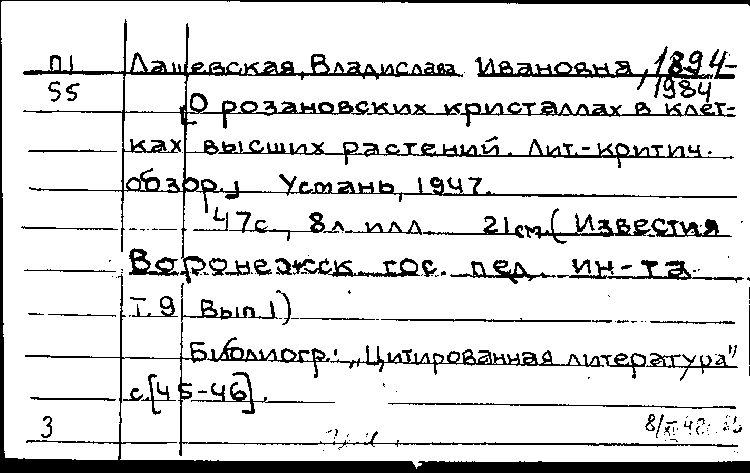 П1 Лашевская, Владислава Ивановна, 1894-
55 1984
О розановских кристаллах в клет-
ках высших растений. Лит.-критич.
обзор. Усмань, 1947.
47с., 8л илл. 21см. (Известия
Воронежск. гос. пед. ин-та
Т. 9 Вып 1)
Библиогр.: „Цитированная литература"
с [45-46].
3 8/XI 48г.